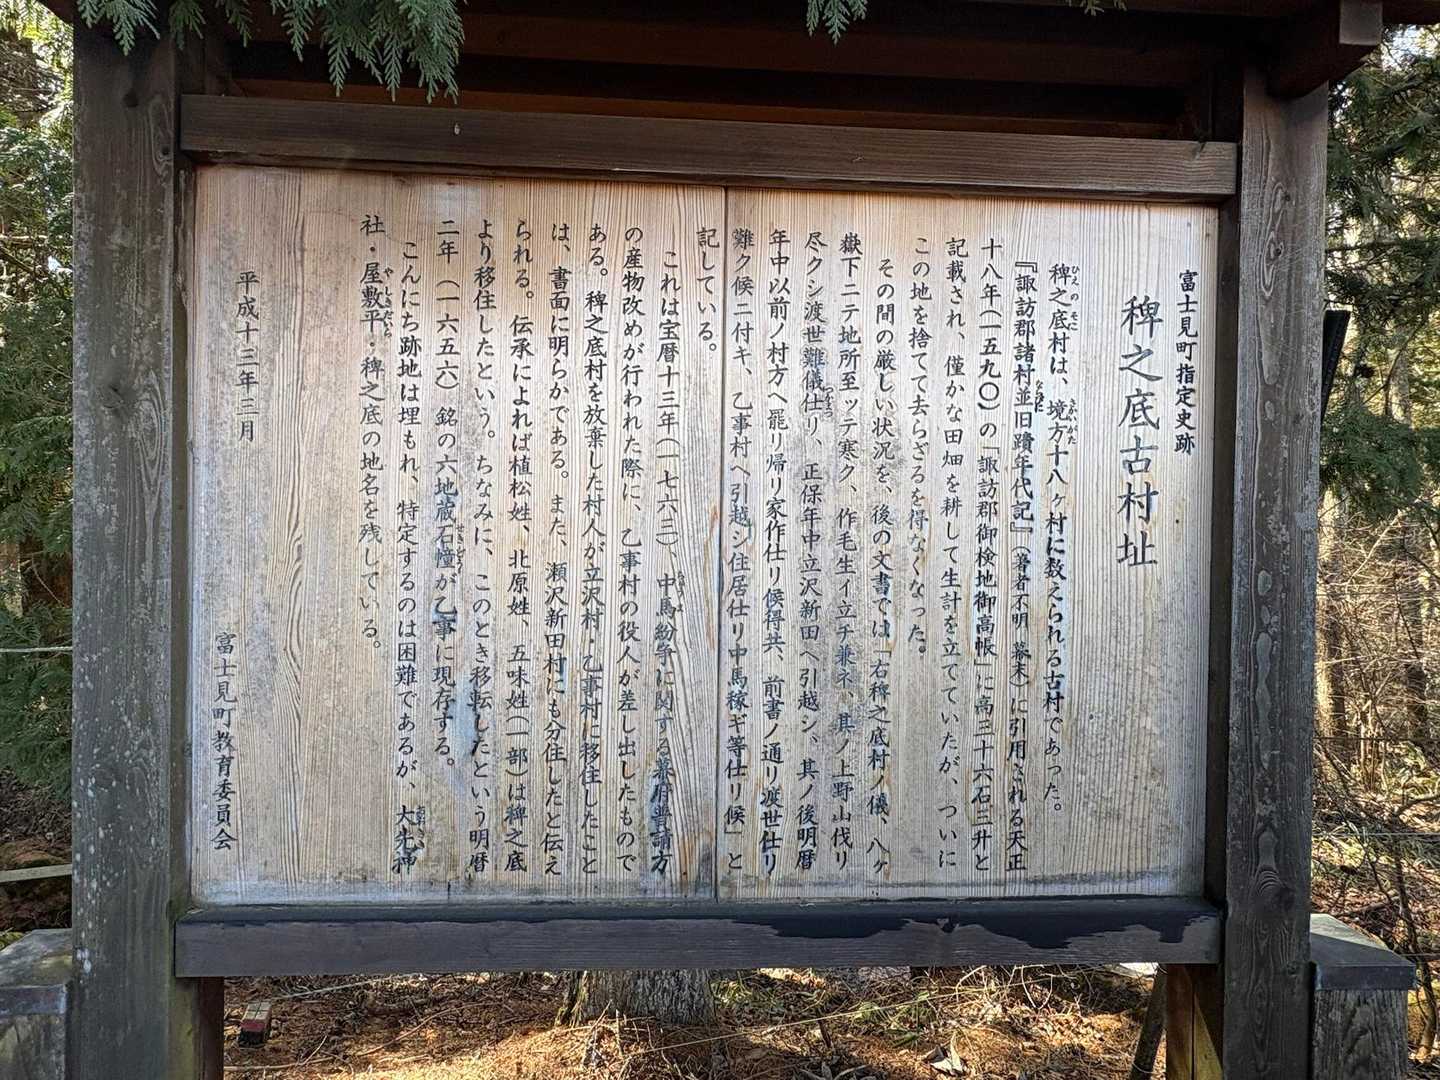 富士見町指定史跡
稗之底古村址
稗之底村は、境方十八ヶ村に数えられる古村であった。
『諏訪郡諸村並旧蹟年代記』(著者不明 幕末)に引用される天正
十八年(一五九〇)の「諏訪郡御検地御高帳」に高三十六石三升と
記載され、僅かな田畑を耕して生計を立てていたが、ついに
この地を捨てて去らざるを得なくなった。
その間の厳しい状況を、後の文書では「右稗之底村ノ儀、八ヶ
嶽下ニテ地所至ッテ寒ク、作毛生イ立チ兼ネ、其ノ上野山伐リ
尽クシ渡世難儀仕リ、正保年中立沢新田ヘ引越シ、其ノ後明暦
年中以前ノ村方ヘ罷リ帰リ家作仕リ候得共、前書ノ通リ渡世仕リ
難ク候ニ付キ、乙事村ヘ引越シ住居仕リ中馬稼ギ等仕リ候」と
記している。
これは宝暦十三年(一七六三)、中馬紛争に関する幕府普請方
の産物改めが行われた際に、乙事村の役人が差し出したもので
ある。稗之底村を放棄した村人が立沢村・乙事村に移住したこと
は、書面に明らかである。また、瀬沢新田村にも分住したと伝え
られる。伝承によれば植松姓、北原姓、五味姓(一部)は稗之底
より移住したという。ちなみに、このとき移転したという明暦
二年(一六五六)銘の六地蔵石幢が乙事に現存する。
こんにち跡地は埋もれ、特定するのは困難であるが、大先神
社・屋敷平・稗之底の地名を残している。
平成十三年三月
富士見町教育委員会